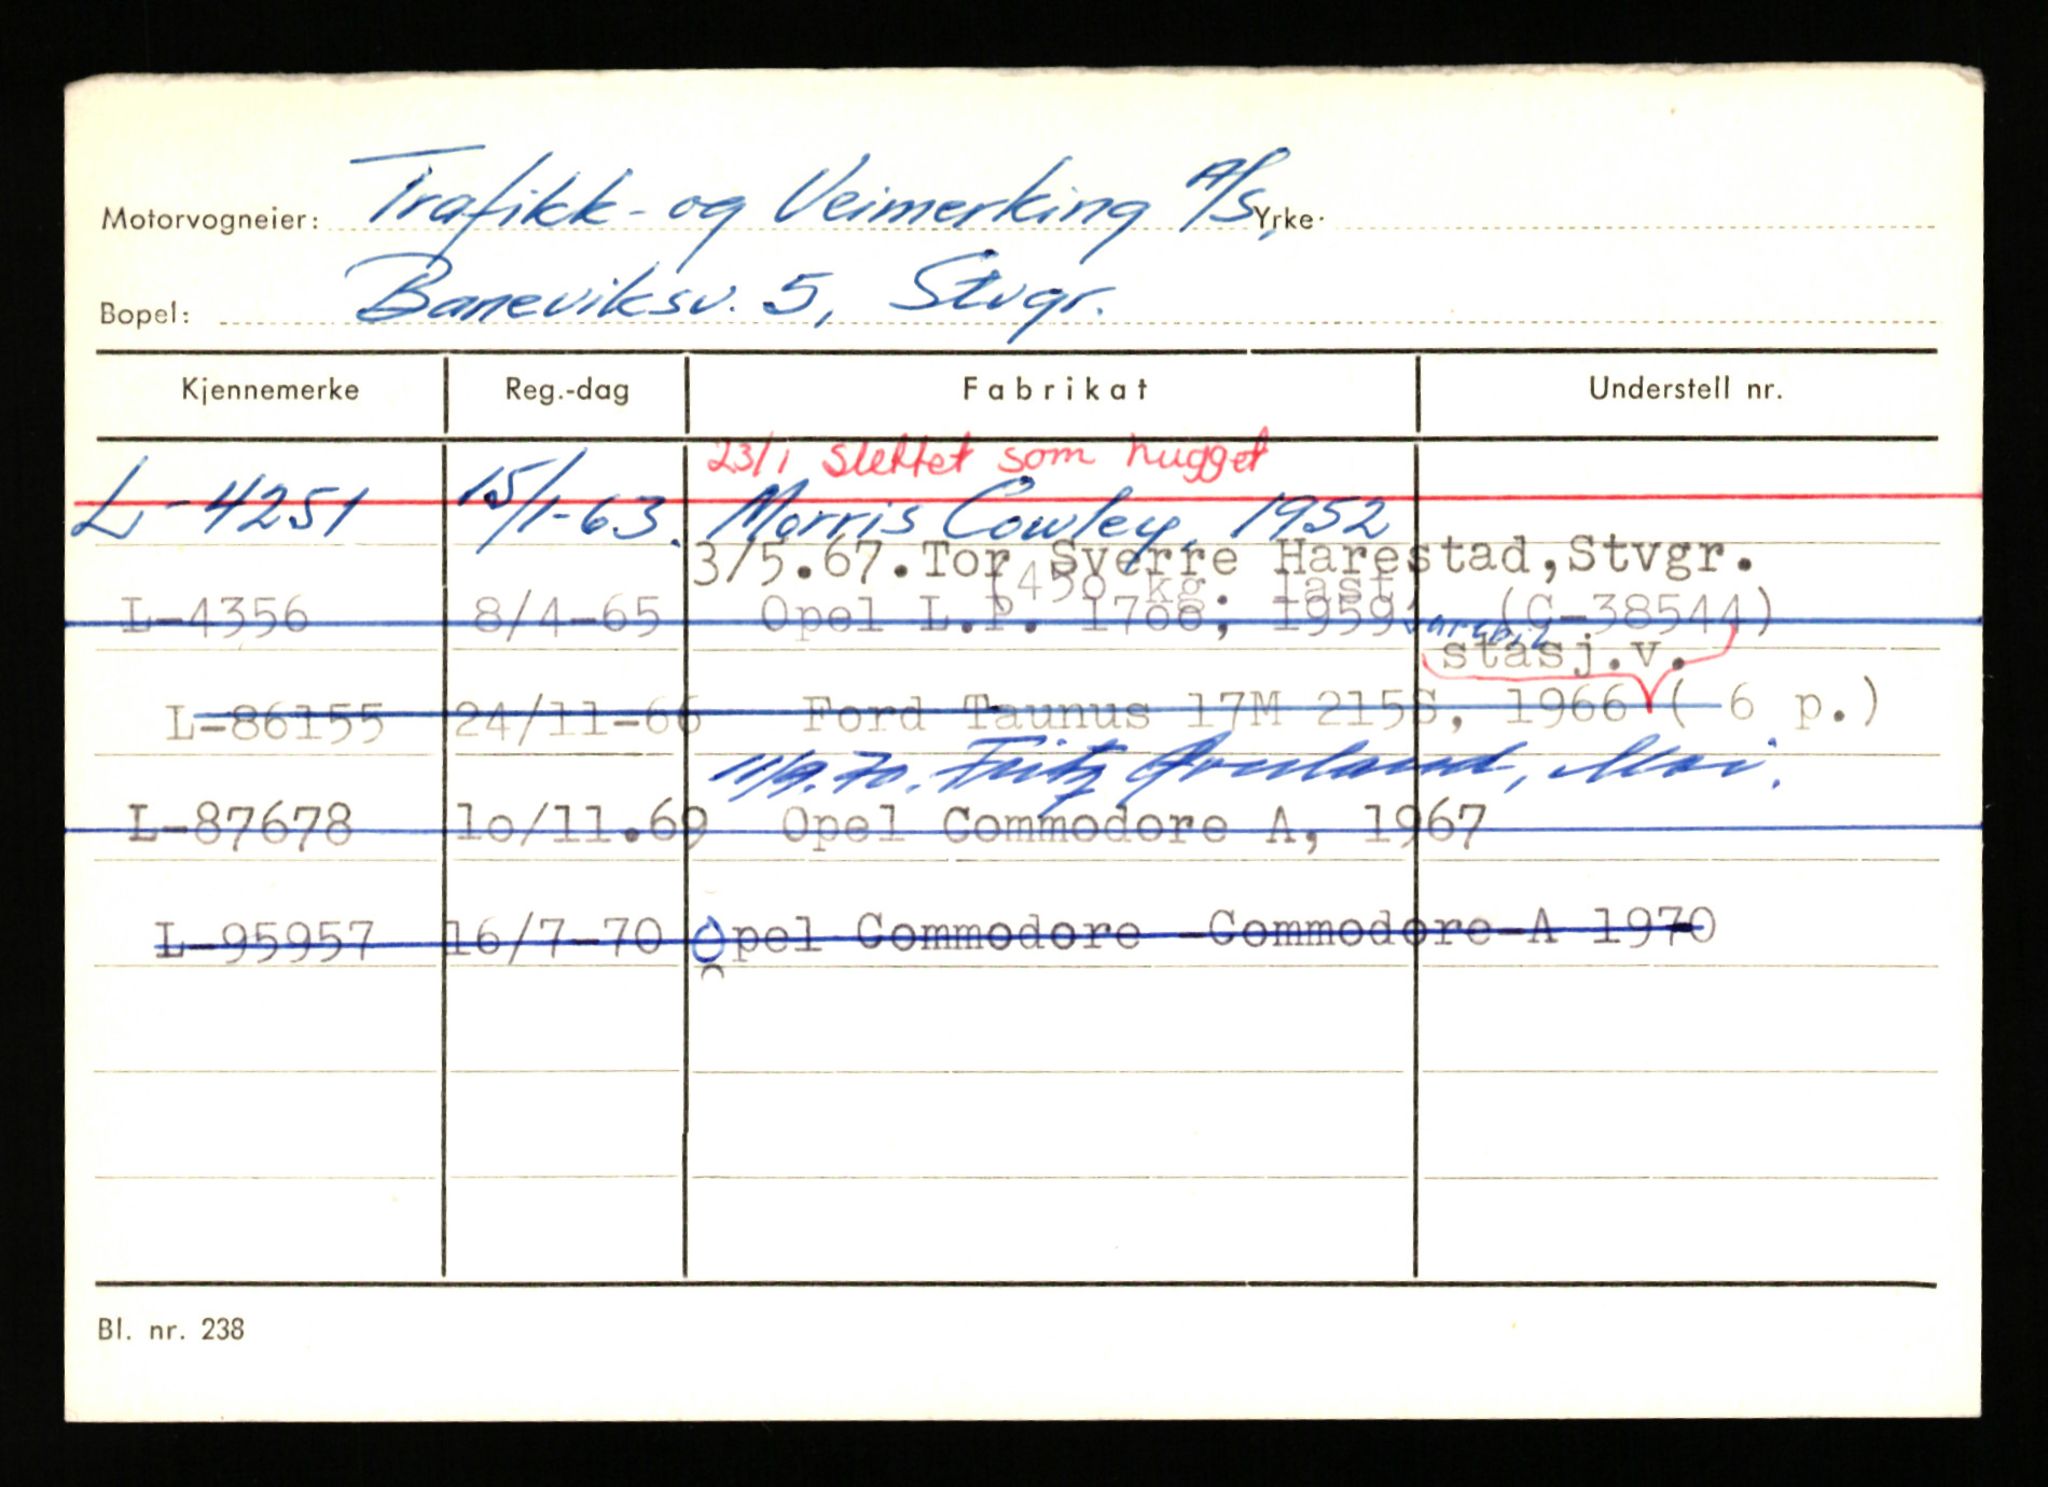 Motorvogneier: Trafikk- og Veimerking A/S, Yrke.
Bopel: Baneviksv. 5, Stvgr.
Kjennemerke Reg.-dag Fabrikat Understell nr.
23/1 slettet som hugget
L-4251 15/1-63. Morris Cowley, 1952
3/5.67. Tor Sverre Harestad, Stvgr.
(450 kg. last,
L-4356 8/4-65 Opel L.P. 1768, 1959 varebil (C-38544)
stasj.v.
L-86155 24/11-66 Ford Taunus 17M 215S, 1966 ( 6 p.)
11/9.70. Fritz Moi.
L-87678 lo/11.69 Opel Commodore A, 1967
L-95957 16/7-70 Opel Commodore -Commodore-A 1970
Bl. nr. 238